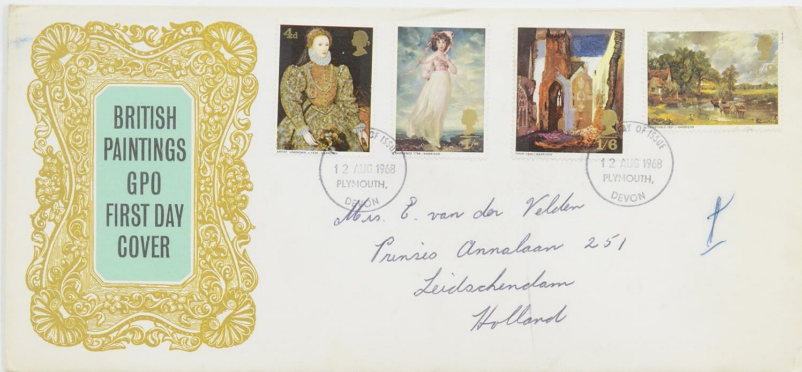 BRITISH
PAINTINGS
GPO
FIRST DAY
COVER
4d
1/6
OF ISSUE
12 AUG 1968
PLYMOUTH,
DEVON
OF ISSUE
12 AUG 1968
PLYMOUTH,
DEVON
Mrs. E. van der Velden
Prinses Annalaan 251
Leidschendam
Holland